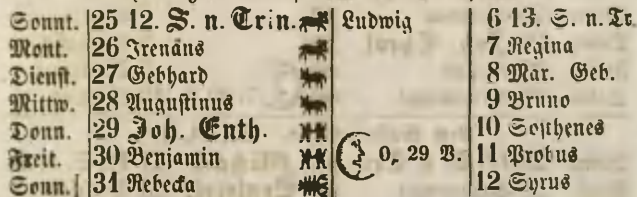 Sonnt. 25 12. S. n. Trin. Ludwig 6 13. S. n. Tr.
Mont. 26 Irenäus 7 Regina
Dienst. 27 Gebhard 8 Mar. Geb.
Mittw. 28 Augustinus 9 Bruno
Donn. 29 Joh. Enth. 10 Sosthenes
Freit. 30 Benjamin 0, 29 V. 11 Probus
Sonn. 31 Rebecka 12 Syrus